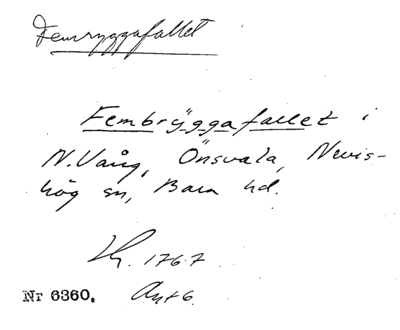 Femryggafallet
Fembrÿggafallet i
N. Vång, Önsvala, Nevis-
hög sn, Bara hd.
Lh. 1767
Nr 6360. Akt 6.